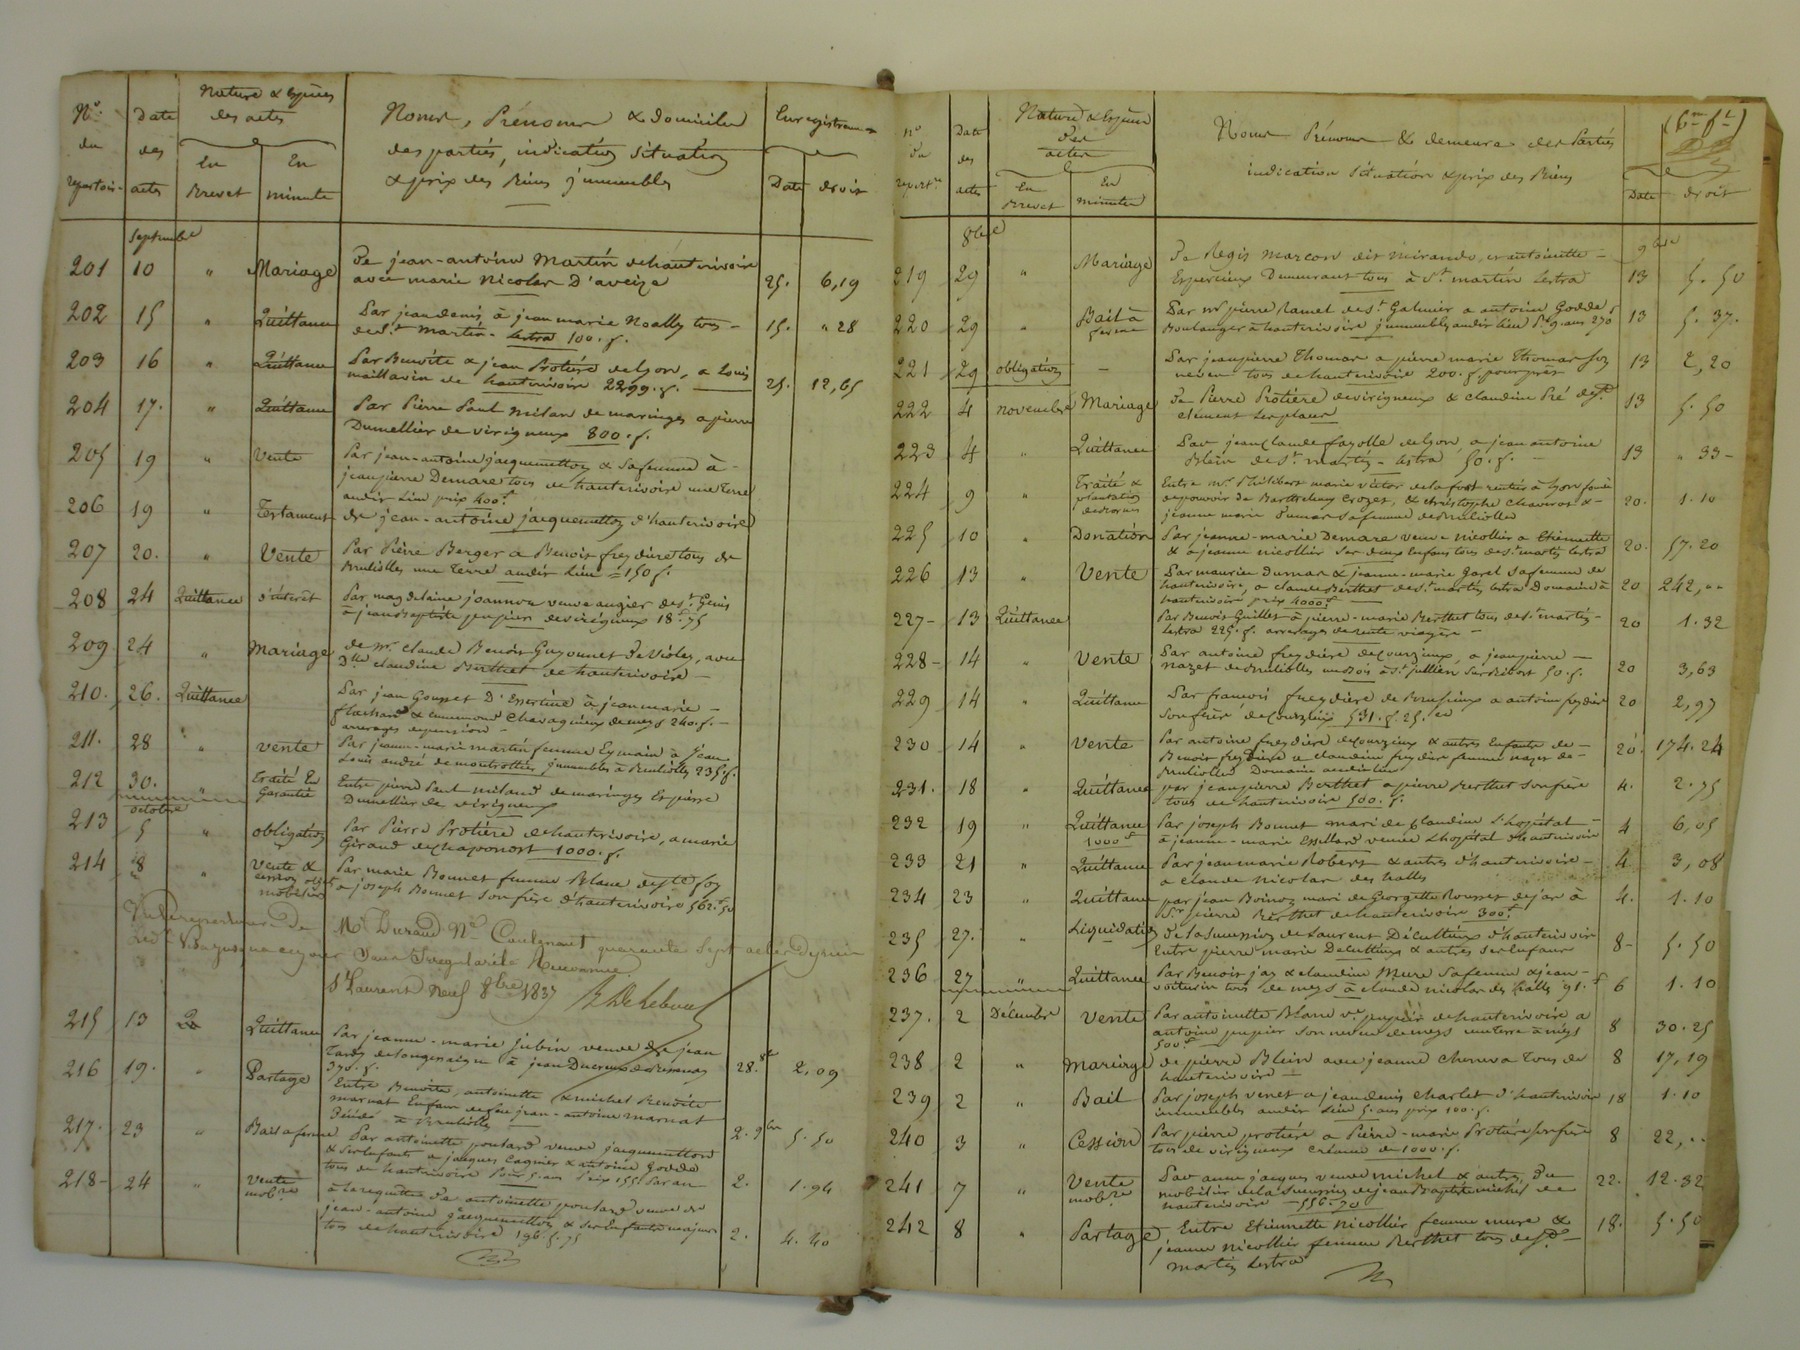 N° du repertoire
Date des actes
Nature & Espèces des actes
En Brevet
En minute
Noms, Prénoms & domicile
des parties, indication situation
& prix des Biens immeubles
Enregistrement
Date
droit
Septembre
201 10 " Mariage De jean-antoine Martin de hauterivoire
avec marie Nicolas D'aveize 25. 6,19
202 15 " Quittance Par jean denis à jean marie Noally tous
de St Martin-Lestra 100.f. 15. " 28
203 16 " Quittance Par Benoite & jean Protière de Lyon, a Louis
de hauterivoire 2299.f. 25. 12,65
204 17. " Quittance Par Pierre Paul Milan de maringes a pierre
Dumellier de virigneux 800.f.
205 19 " Vente Par jean-antoine jacquemetton & sa femme à
jean pierre Demare tous de hauterivoire une Terre
audit Lieu prix 400f
206 19 " Testament de jean-antoine jacquemetton d'hauterivoire
207 20. " Vente Par Pierre Berger à Benoit freydiere tous de
Brullioles une Terre audit Lieu = 150f.
208 24 Quittance d'interêt Par magdelaine joannon veuve augier de St Genis
à jean Baptiste pupier de virigneux 18f.75
209 24 " Mariage de Mr. Claude Benoit Guyonnet de Violey, avec
Dlle claudine Berthet de hauterivoire
210. 26. Quittance Par jean Gousset D'Essertine à jean marie
& Chavagneux de meys 240.f.
arrerages de pension
211. 28 " vente Par jeanne-marie martin femme Eymain à jean
Louis andré de montrottier immeubles à Brullioles 235.f.
212 30. " Traité En Garantie Entre pierre Paul milan de maringes Et pierre
Dumellier de virigneux
octobre
213 5 " obligation Par Pierre Protière de hauterivoire, a marie
Giraud de chaponost 1000.f.
214 8 " Vente & cession objets mobiliers Par marie Bonnet femme Blanc de Ste foy
a joseph Bonnet son frère d'hauterivoire 562.f 50
Vu Le repertoire de Me Durand Nre Contenant quarante Sept actes depuis
Sans Irregularité Reconnue
St Laurent Neuf 8bre 1837
215 13 " Quittance Par jeanne-marie jubin veuve de jean
Tardy de Longessaigne à jean Ducreux
370.f. 28. 8re 2,09
216 19. " Partage Entre Benoite, antoinette & michel Benoite
marnat Enfans de feu jean-antoine marnat
à Brullioles 2. 9bre 5.50
217. 23 " Bail a ferme Par antoinette poulard veuve jacquemetton
& ses Enfants a jacques Cognier & antoine Godde
tous de hauterivoire Pour 9.ans Prix 155f Par an 2. 1.94
218- 24 " Vente mobre à La requête de antoinette poulard veuve de
jean-antoine jacquemetton & ses Enfants majeurs
tous de hauterivoire 196.f.75 2. 4.40
(6me ft)
N° du repertre
Date des actes
Nature & Espèce des actes
En Brevet
En minute
Noms Prénoms & demeures des Parties
indication situation & prix des Biens
Date
droit
8bre
9bre
219 29 " Mariage De Régis Marcon dit Mirande, et antoinette
Demeurant tous à St martin Lestra 13 5.50
220 29 " Bail à ferme Par Mr pierre Ramel de St Galmier a antoine Godde
Boulanger à hauterivoire immeubles audit lieu Pr 9.ans 270 13 5.37.
221 29 obligation - Par jean pierre Thomas a pierre marie Thomas son
neveu tous de hauterivoire 200.f. pour prêt 13 2,20
222 4 novembre Mariage De Pierre Protière de virigneux & claudine Pré de St
clement les places 13 5.50
223 4 " Quittance Par jean Claude fayolle de Lyon, a jean antoine
Blein de St martin-Lestra 50.f. 13 " 33
224 9 " Traité & plantation des bornes Entre Mr Philibert marie victor de la fost rentier à Lyon fondé
de pouvoir de Barthelemy Crozet, & christophe Chavirot &
jeanne marie Dumas sa femme de Brullioles 20. 1.10
225 10 " Donation Par jeanne-marie Demare veuve Nicollier a Etiennette
& a jeanne nicollier ses deux Enfans tous de St martin Lestra 20. 57.20
226 13 " Vente Par maurice Dumas & jeanne-marie garel sa femme de
hauterivoire, a claude Berthet de St martin Lestra Domaine à
hauterivoire prix 4000f 20 242,"
227- 13 Quittance Par Benoit Guillet à pierre-marie Berthet tous de St martin-
Lestra 225.f. arrerages de rente viagère 20 1.32
228- 14 " Vente Par antoine freydière de Courzieux, a jean pierre
Nazet de Brullioles un Bois à St jullien sur Bibost 50.f. 20 3,63
229 14 " Quittance Par francois freydière de Brussieux a antoine freydière
son frère de Courzieux 531.f.25.c 20 2,97
230 14 " Vente Par antoine freydière de Courzieux & autres Enfants de
Benoit freydière a claudine freydière femme nazet de
Brullioles Domaine audit lieu 20. 174.24
231. 18 " Quittance par jean pierre Berthet a pierre Berthet son frère
tous de hauterivoire 500.f. 4. 2.75
232 19 " Quittance 1000f Par joseph Bonnet mari de Claudine L'hopital
à jeanne-marie Essellard veuve Lhopital d'hauterivoire 4 6,05
233 21 " Quittance Par jean marie Robert & autres d'hauterivoire
a claude Nicolas des halles 4 3,08
234 23 " Quittance par jean Boinon mari de Georgette Rousset de jas à
Sr pierre Berthet de hauterivoire 300f 4. 1.10
235 27. " Liquidation de la succession de Laurent Décultieux d'hauterivoire
Entre pierre-marie Decultieux & autres ses Enfans 8- 5.50
236 27 " Quittance Par Benoit jas & claudine Mure sa femme & jean
voiturin tous de meys à claude nicolas des halles 91.f 6 1.10
237. 2 Décembre Vente Par antoinette Blanc ve pupier de hauterivoire a
antoine pupier son neveu de meys une terre à meys
500f 8 30.25
238 2 " Mariage de pierre Blein avec jeanne Chenevas tous de
hauterivoire 8 17,19
239 2 " Bail Par joseph venet a jean denis Charlet d'hauterivoire
immeubles audit Lieu 9.ans prix 100.f. 18 1.10
240 3 " Cession Par pierre protière a Pierre-marie Protière son frère
tous de virigneux créance de 1000.f. 8 22,"
241 7 " Vente mobre Par anne jacques veuve michel & autres, du
mobilier de la succession de jean Baptiste michel de
hauterivoire 556.70 22. 12.32
242 8 " Partage Entre Etiennette Nicollier femme mure &
jeanne nicollier femme Berthet tous de St
martin Lestra 18. 5.50